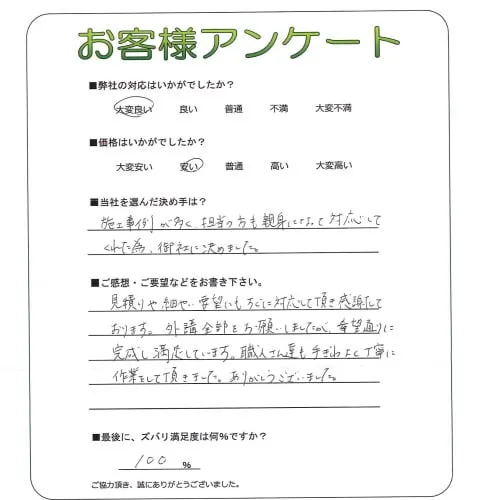 お客様アンケート
■弊社の対応はいかがでしたか？
大変良い 良い 普通 不満 大変不満
■価格はいかがでしたか？
大変安い 安い 普通 高い 大変高い
■当社を選んだ決め手は？
施工事例が多く、担当の方も親身になって対応して
くれた為、御社に決めました。
■ご感想・ご要望などをお書き下さい。
見積りや細かい要望にもすぐに対応して頂き感謝して
おります。外講全部をお願いしましたが、希望通りに
完成し満足しています。職人さん達も手ぎわよく丁寧に
作業をして頂きました。ありがとうございました。
■最後に、ズバリ満足度は何％ですか？
100 ％
ご協力頂き、誠にありがとうございました。